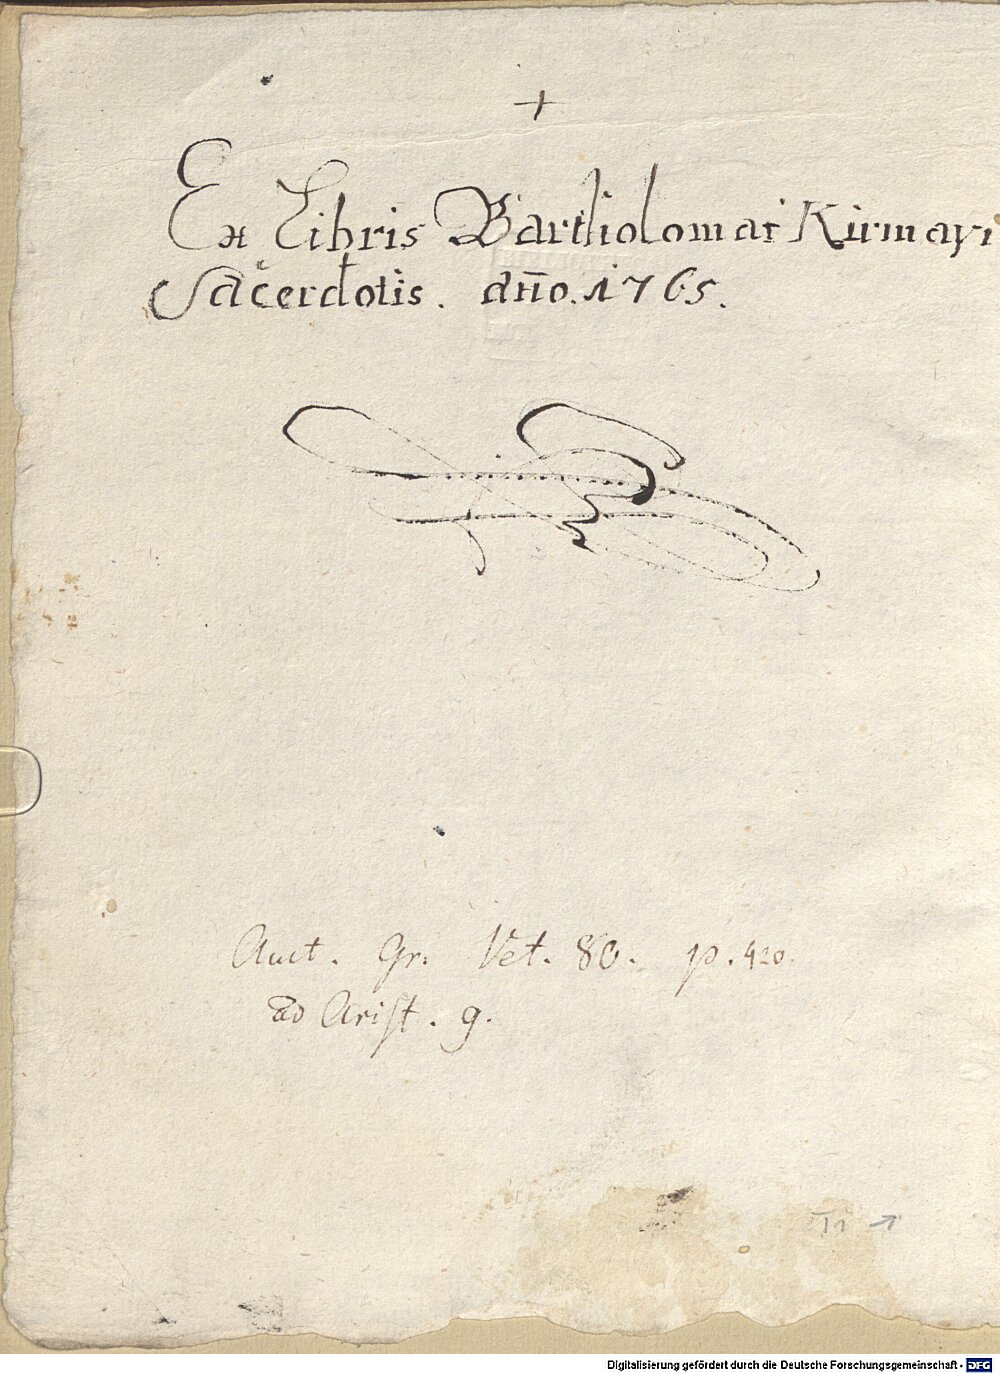 +
Ex Libris Bartholomai Kirmayri
Sacerdotis. año. 1765.
Auct. Gr. Vet. 80. p. 420.
ad Arist. 9.
Digitalisierung gefördert durch die Deutsche Forschungsgemeinschaft - DFG